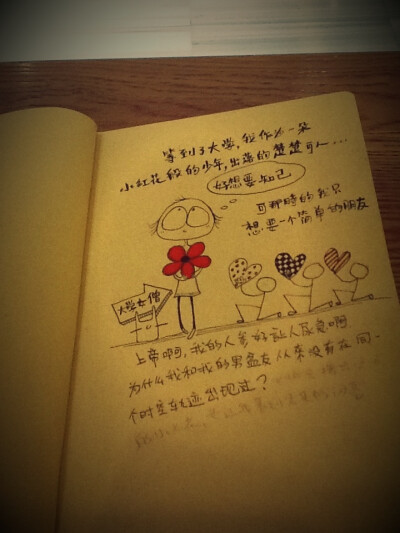 等到了大学,我作为一朵
小红花般的少年,出落的楚楚可人...
好想要知己
可那時的我只
想要一个简单的朋友
大学女僧
上帝啊,我的人参好让人尿急啊
为什么我和我的男盆友从来没有在同一
个时空轨迹出现过?